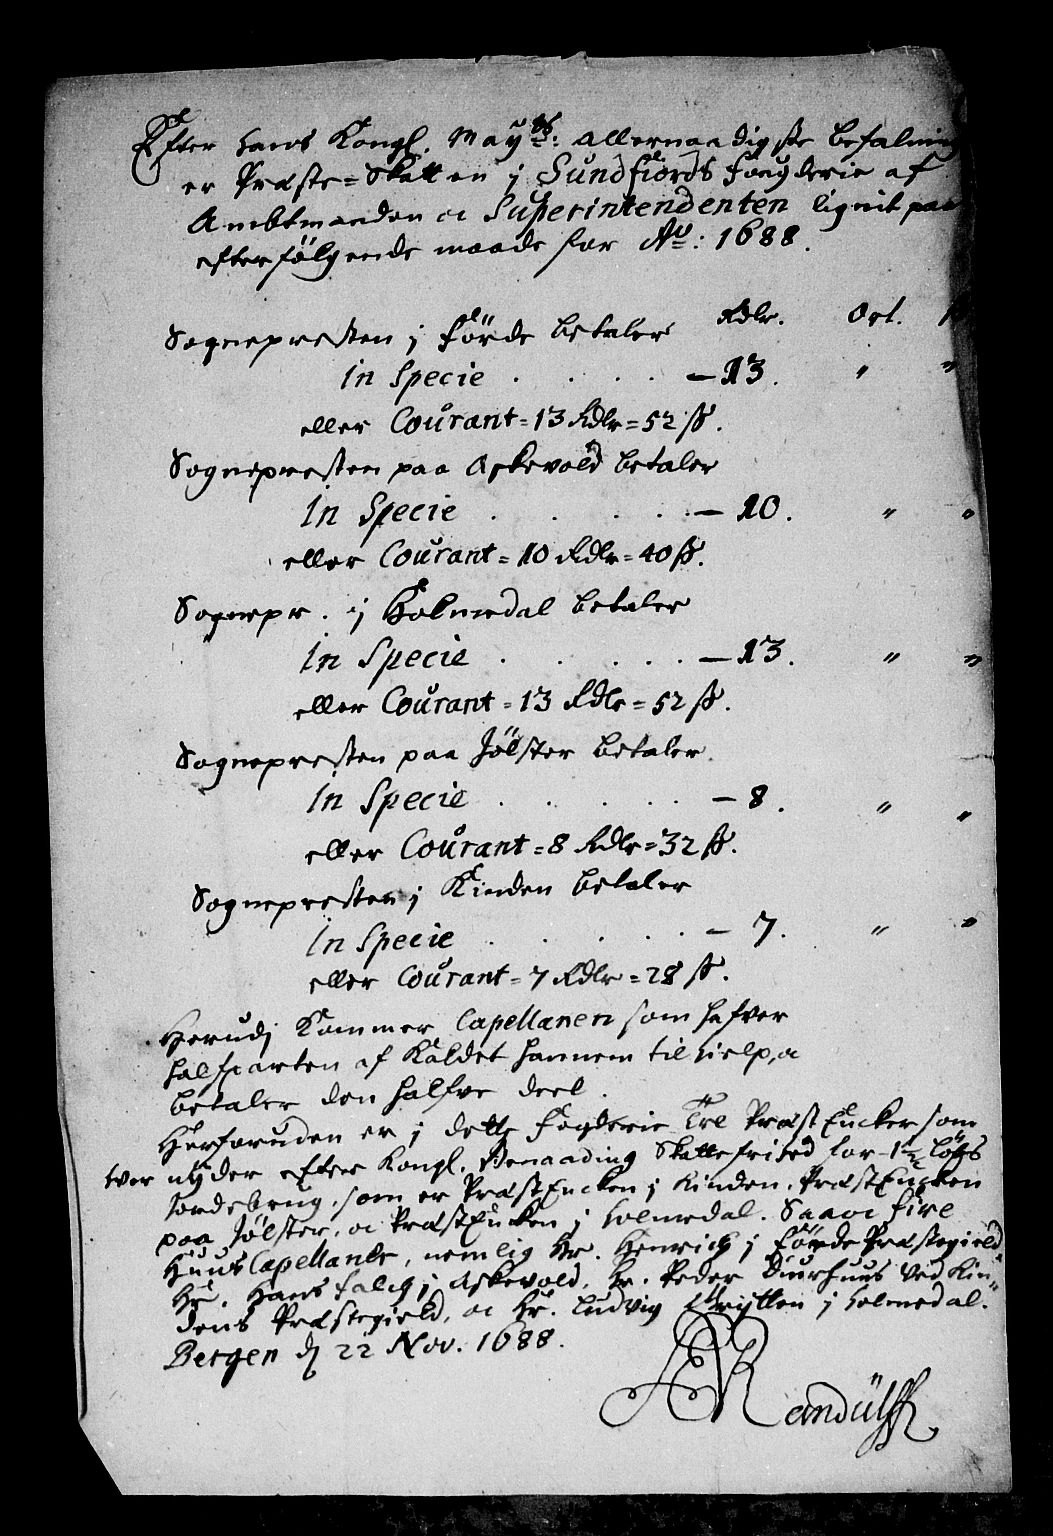 Efter hans Kongl. May:ts: allernaadigste befalning
er Præste-Skatten j Sundfiords Fougderie af
Ambtmanden oc Superintendenten lignit paa
efterfølgende maade for Ao: 1688.
Rdlr. Ort. ß
Sognepresten j Förde betaler
in Specie . . . . — 13. " "
eller Courant = 13 Rdlr = 52 ß.
Sognepresten paa Askevold betaler
in Specie . . . . — 10. " "
eller Courant = 10 Rdlr = 40 ß.
Sognepr. j Holmedal betaler
in Specie . . . . — 13. " "
eller Courant = 13 Rdlr = 52 ß.
Sognepresten paa Jölster betaler
in Specie . . . . — 8. " "
eller Courant = 8 Rdlr = 32 ß.
Sognepresten j Kinden betaler
in Specie . . . . — 7. " "
eller Courant = 7 Rdlr = 28 ß.
Herudj Kommer Capellanen som hafver
halfparten af Kaldet hannem til hielp, oc
betaler den halfve deel.
Herforuden er j dette Fogderie Tre Præst Encker som
hver nyder efter Kongl. Benaading Skatte frihed for 1 Löbs
Jordebrug, som er Præst Encken j Kinden, Præst Encken
paa Jölster, oc Præst Encken j Holmedal. Saa oc fire
Huus Capellaner, nemlig Hr. Henrich j Förde Præstegield
Hr. Hans Falch j Askevold, Hr. Peder Duurhuus ved Kin-
dens Præstegield, oc Hr. Ludvig Grytten j Holmedal.
Bergen d 22 Nov. 1688.
Randülff